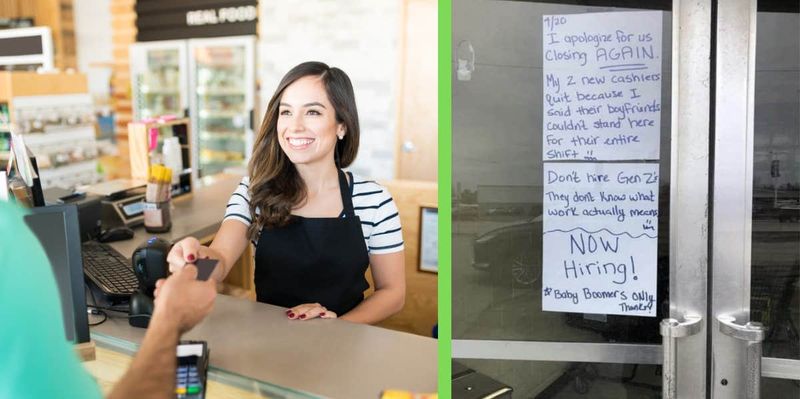 REAL FOOD
4/20
I apologize for us
Closing AGAIN.
My 2 new cashiers
quit because I
said their boyfriends
couldn't stand here
for their entire
shift
Don't hire Gen Z's
They don't know what
work actually means
NOW
Hiring!
* Baby Boomers ONLY
Thanks!